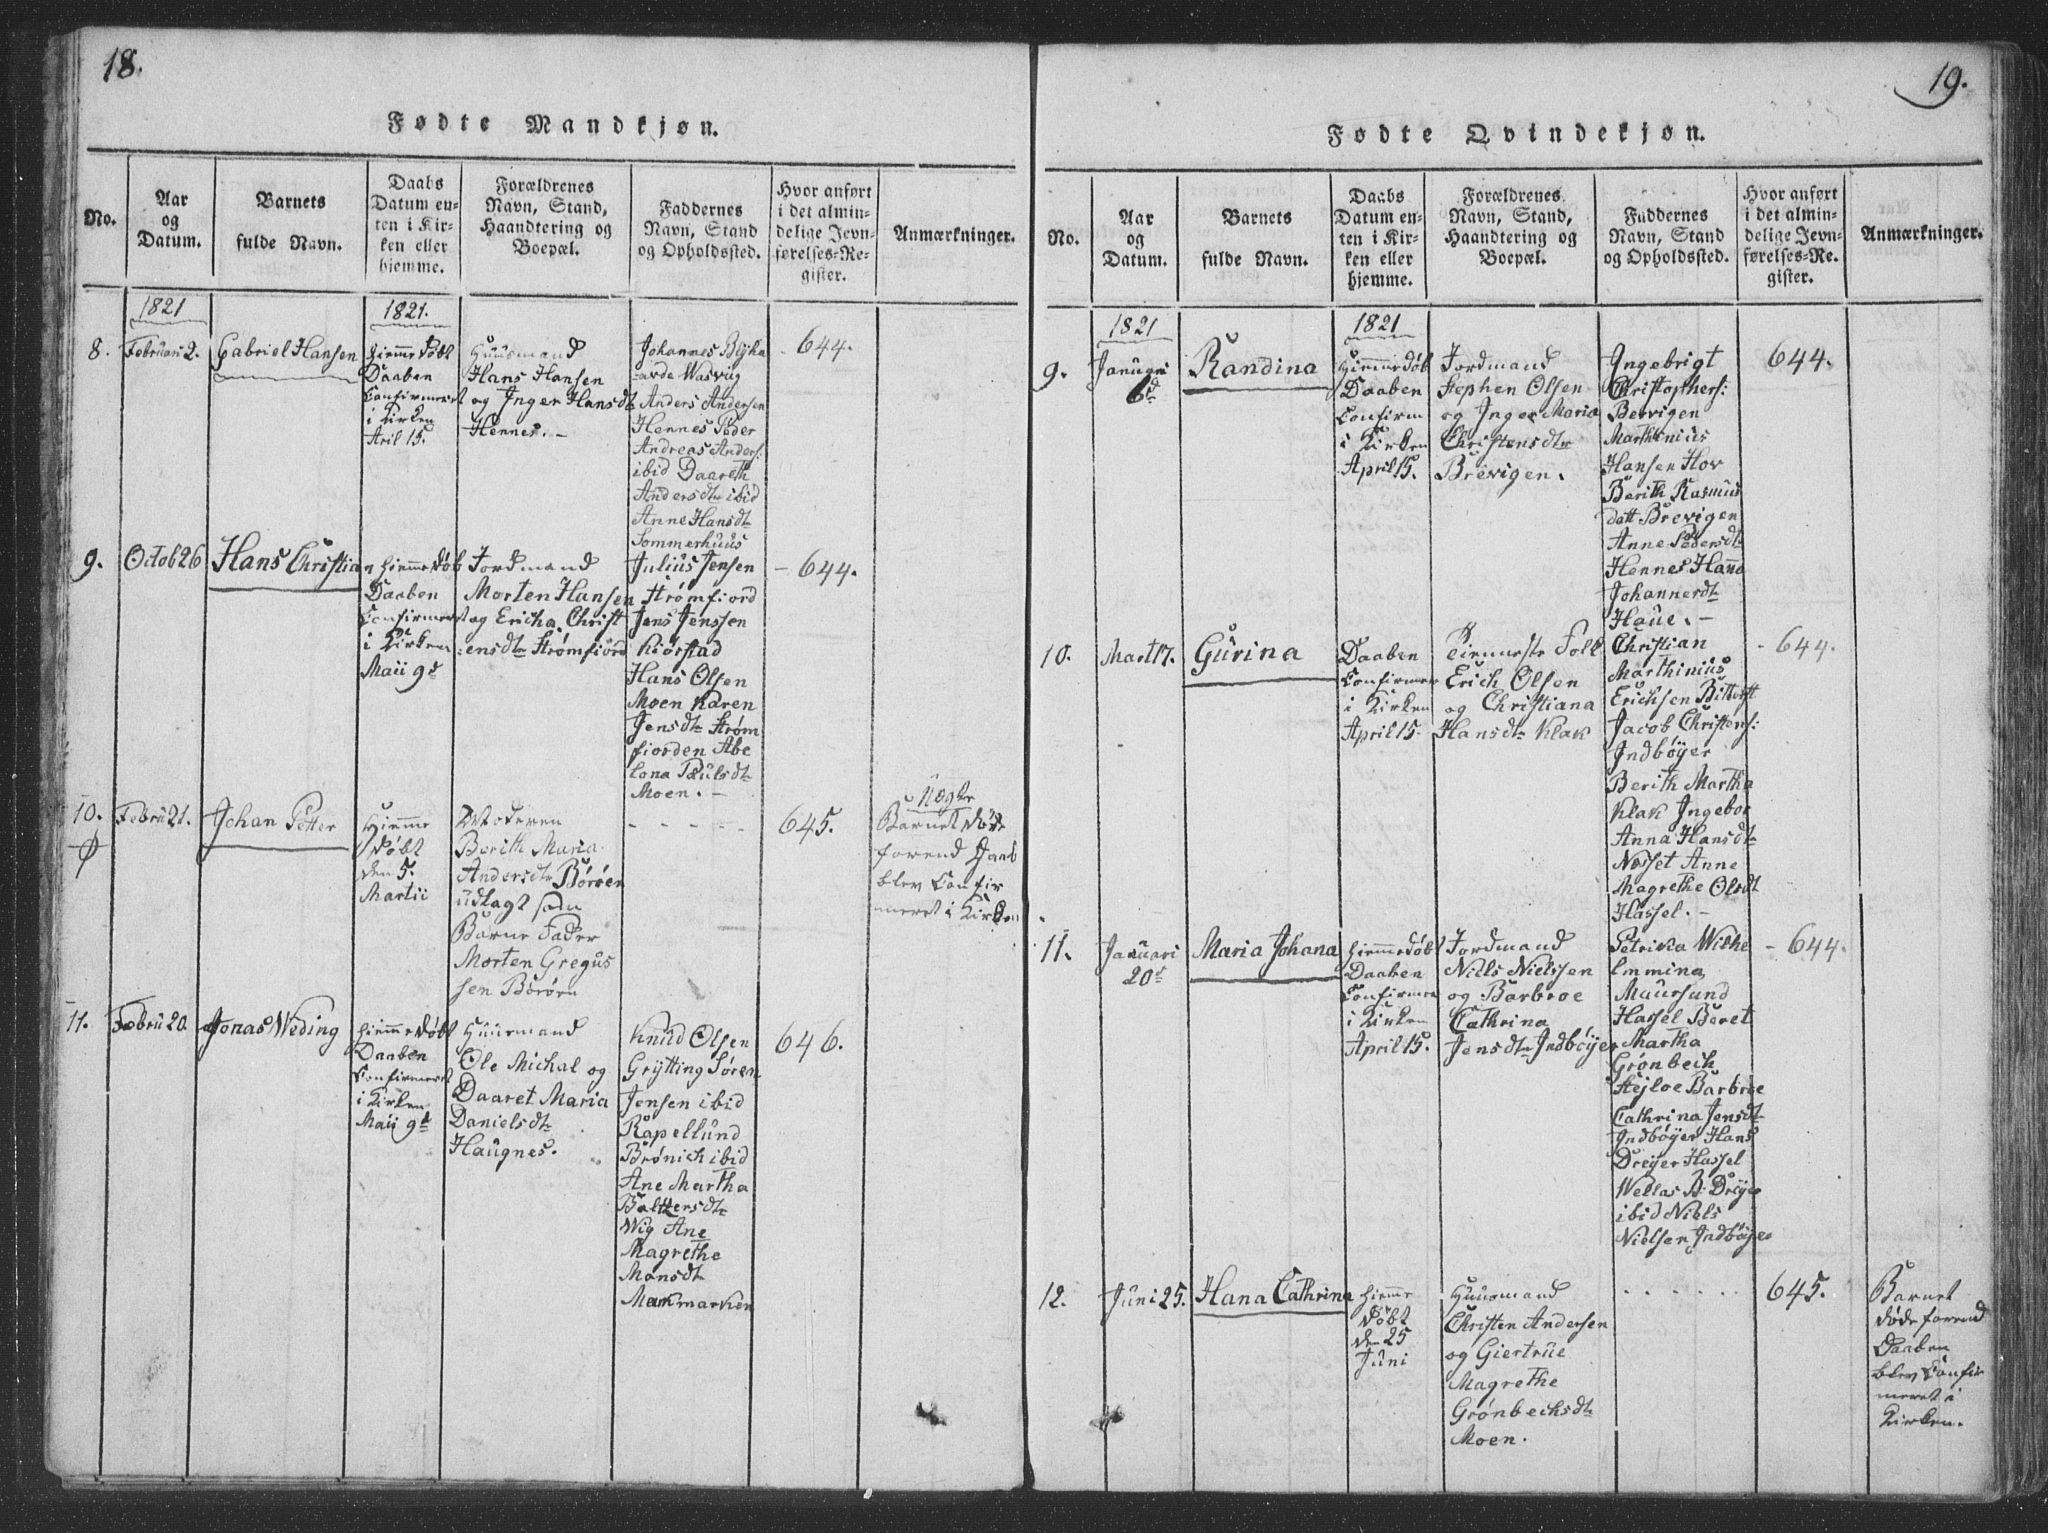 18.
Fødte Mandkjøn.
No.
Aar
og
Datum.
Barnets
fulde Navn.
Daabs
Datum en-
ten i Kir-
ken eller
hjemme.
Forældrenes
Navn, Stand,
Haandtering og
Boepæl.
Faddernes
Navn, Stand
og Opholdssted.
Hvor anført
i det almin-
delige Jevn-
førelses-Re-
gister.
Anmærkninger.
8.
1821
Februari 2.
Gabriel Hansen
1821.
Hiemme Døbt
Daaben
Confirmeret
i Kirken
Aril 15.
Huusmand
Hans Hansen
og Inger Hansdt
Hennes. –
Johannes
Anders Andersen
Hennes Peder
Andreas Anders:
ibid Daareth
Andersdtr ibid
Anne Hansdtr
Sommerhuus
644.
9.
Octob 26
Hans Christian
Hiemme Døb
Daaben
Confirmeret
i Kirken
Maii 9d
Jordmand
Morten Hansen
og Ericha Christ
:ensdtr Strømfiord
Julius Jensen
Strømfiord
Jens Jenssen
Kiørstad
Hans Olsen
Moen Karen
Jensdtr Strøm
fiorden Abe
lona Paulsdtr
Moen. –
– 644.
10.
Febru 21.
Johan Petter
Hiemme
Døbt
den 5.
Martii
Moderen
Berith Maria
Andersdtr Børøen
udlagt som
Barne Fader
Morten Gregus
sen Børøen
- - - - -
645.
Uægte
Barnet døde
forend Daab
blev Confir
meret i Kirken
11.
Febru 20.
Jonas Weding
Hiemme Døbt
Daaben
Confirmeret
i Kirken
Maii 9d
Huusmand
Ole Michal og
Daaret Maria
Danielsdtr
Haugnes.
Knud Olsen
Grÿtting Søren
Jensen ibid
Rapellund
Brønich ibid
Ane Martha
Baltzersdtr
Wig Ane
Magrethe
Monsdtr
Mækmarken
646.
19.
Fødte Qvindekjøn.
No.
Aar
og
Datum.
Barnets
fulde Navn.
Daabs
Datum en-
ten i Kir-
ken eller
hjemme.
Forældrenes
Navn, Stand,
Haandtering og
Boepæl.
Faddernes
Navn, Stand
og Opholdssted.
Hvor anført
i det almin-
delige Jevn-
førelses-Re-
gister.
Anmærkninger.
9.
1821
Januari
6d
Randina
1821
Hiemme døb
Daaben
Confirm
i Kirken
April 15.
Jordmand
Stephen Olsen
og Inger Maria
Christensdtr
Brevigen.
Ingebrigt
Christophers:
Brevigen
Marthinius
Hansen Hov
Berith Rasmus
datt Brevigen
Anne Pedersdtr
Hennes Hanna
Johannerdtr
Haue. –
644.
10.
Mart 17.
Gurina
Daaben
Confirmer
i Kirken
April 15-
Tienneste Folk
Erich Olsen
og Christiana
Hansdtr Klak
Christian
Marthinius
Erichsen
Jacob Christens:
Indbøyer
Berith Martha
Klak Ingebor
Anna Hansdtr
Næsset Anne
Magrethe Olsdt
Hassel. –
- 644.
11.
Januari
20d
Maria Johana
Hiemme døbt
Daaben
Confirmer
i Kirken
April 15.
Jordmand
Nills Nielssen
og Barbroe
Cathrina
Jensdtr Indbøyer
Petrika Wilhe
lmmina
Maursund
Hassel Beret
Martha
Grønbech
Stejloe Barbroe
Cathrina Jensdt
Indbøyer Hans
Dreÿer Hassel
Wellas B. Dreÿe
ibid Niels
Nielsen Indbøye
- 644.
12.
Juni 25.
Hana Cathrina
Hiemme
Døbt
den 25
Juni
Huusmand
Christen Andersen
og Giertrue
Magrethe
Grønbechsdtr
Moen.
. . . . . .
645.
Barnet
døde forend
Daaben
blev Confir
meret i
Kirken.